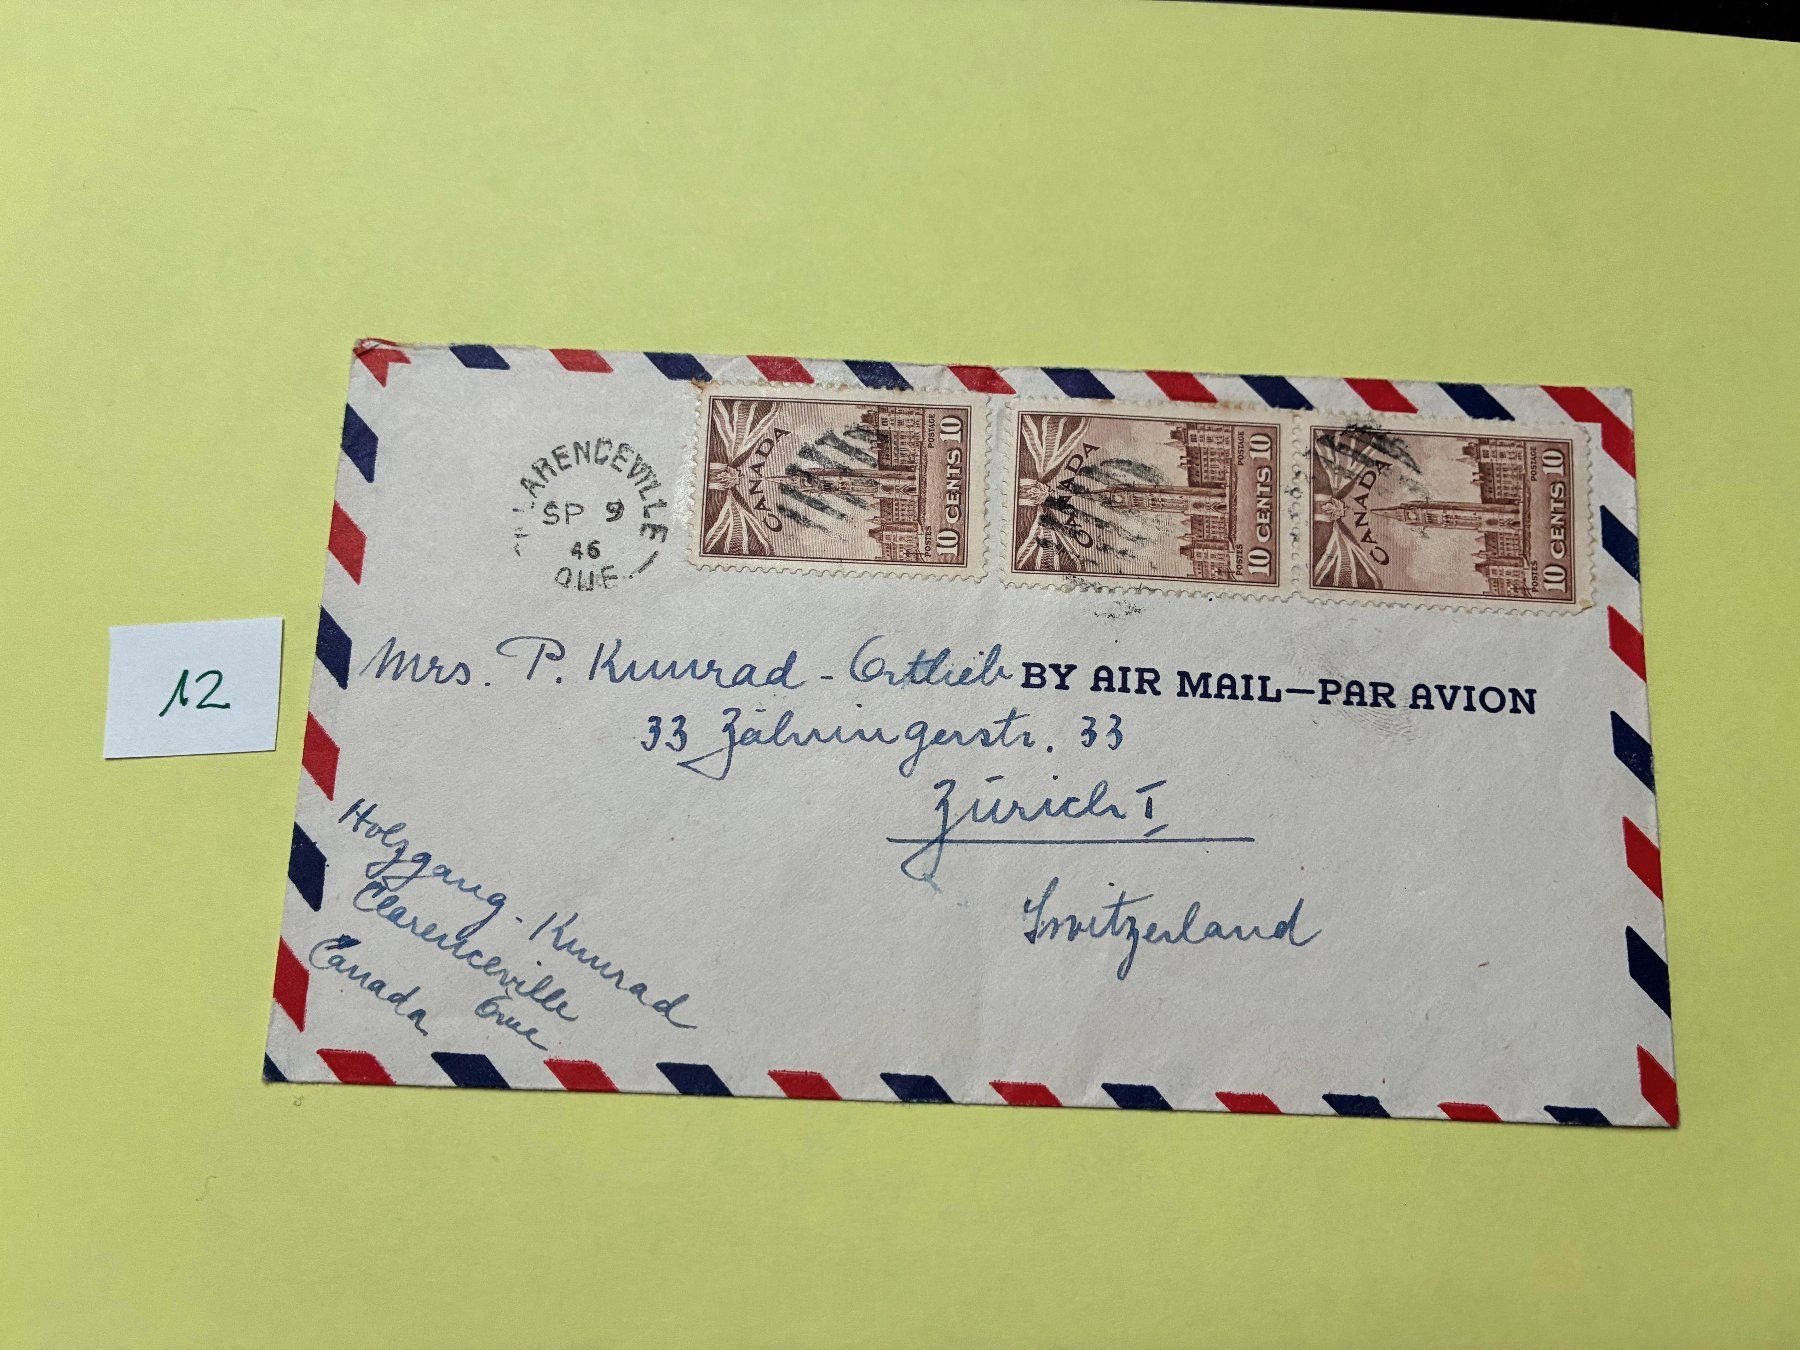 CLARENCEVILLE
SP 9
46
QUE.
CANADA
POSTES POSTAGE
10 CENTS 10
CANADA
POSTES POSTAGE
10 CENTS 10
CANADA
POSTES POSTAGE
10 CENTS 10
Mrs. P. Kunrad - Ortlieb
BY AIR MAIL—PAR AVION
33 Zähringerstr. 33
Zürich 1
Switzerland
12
Holzgang - Kunrad
Clarenceville
Que
Canada